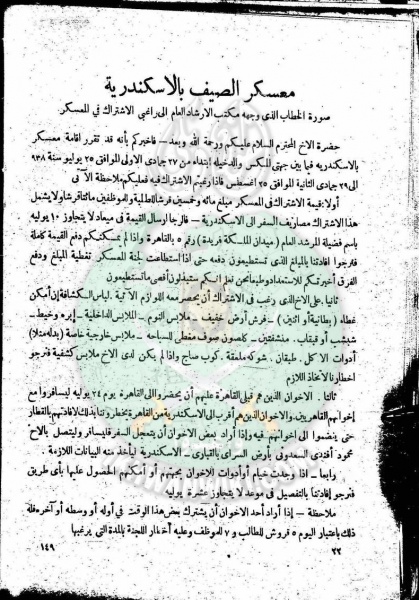 معسكر الصيف بالاسكندرية
صورة الخطاب الذى وجهه مكتب الارشاد العام الى راغبى الاشتراك فى المعسكر
حضرة الاخ المحترم السلام عليكم ورحمة الله وبعد ـ فأخبركم بأنه قد تقرر اقامة معسكر
بالاسكندريه فيما بين جهتى المكس والدخيله ابتداء من ٢٧ جمادى الاولى الموافق ٢٥ يوليو سنة ٩٣٨
الى ٢٩ جمادى الثانية الموافق ٢٥ اغسطس فاذا رغبتم الاشتراك فيه فعليكم ملاحظة الآتى
أولا : قيمة الاشتراك فى المعسكر مبلغ مائه وخمسين قرشا للطلبة والموظفين مائتا قرشا ولا يشمل
هذا الاشتراك مصاريف السفر الى الاسكندرية ـ فأرجا ارسال القيمة فى ميعاد لا يتجاوز ١٠ يوليه
باسم فضيلة المرشد العام ( ميدان الملكة فريدة ) رقم ٥ بالقاهرة واذا لم يمكنكم دفع القيمة كاملة
فنرجوا افادتنا بالمبلغ الذى تستطيعون دفعه حتى اذا استطاعت لجنة المعسكر تغطية المبلغ ودفع
الفرق أخبرتكم للاستعداد وطبعا نحن نعلم انكم ستبذلون أقصى ما تستطيعون
ثانيا . على الاخ الذى رغب فى الاشتراك أن يحضر معه اللوازم الآتية . لباس الكشافة إن أمكن
غطاء ( بطانية أو اثنين ) ـ فرش أرض خفيف ـ ملابس النوم ـ الملابس الداخلية ـ إبره وخيط ـ
شبشب أو قبقاب . منشفتين ـ كلصون صوف مغطى للسباحه ـ ملابس خارجية خاصة ( بدله مثلا )
أدوات الاكل . طبقان . شوكه ملعقة . كوب صاج واذا لم يكن لدى الاخ ملابس كشفية فنرجو
اخطارنا لاتخاذ اللازم
ثالثا . الاخوان الذين هم قبلى القاهرة عليهم أن يحضروا الى القاهرة يوم ٢٤ يوليه ليسافروا مع
إخوانهم القاهريين والاخوان الذين هم أقرب الى الاسكندرية من القاهرة يخطرونا بذلك لافادتهم بالقطار
حتى ينضموا الى اخوانهم فيه وإذا أراد بعض الاخوان أن يتعجل السفر فليسافر وليتصل بالاخ
محمود أفندى السعدونى بأرض السراى بالقبارى ـ الاسكندرية ليأخذ منه البيانات اللازمة .
رابعا ـ اذا وجدت خيام أو أدوات للاخوان بجهتهم أو أمكنهم الحصول عليها بأى طريق
فنرجو إفادتنا بالتفصيل فى موعد لا يتجاوز عشرة يوليه
ملاحظة ـ إذا أراد أحد الاخوان أن يشترك بعض هذا الوقت فى أوله أو وسطه أو آخره فله
ذلك باعتبار اليوم ٥ قروش للطالب و ٧ للموظف وعليه أخطار اللجنة بالمدة التى يرغبها
٢٢
١٤٩